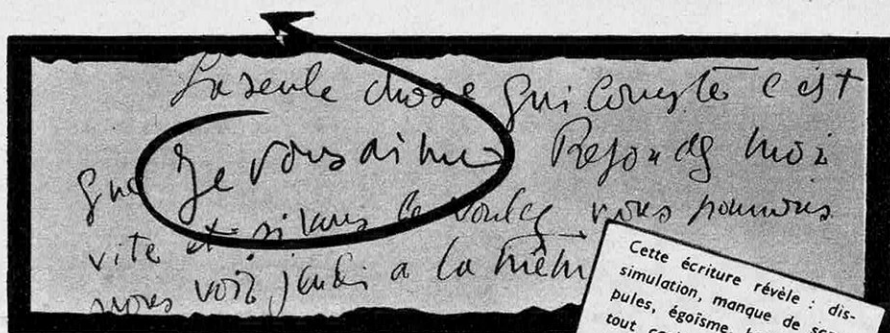 La seule chose qui compte c'est
que je vous aime Reponds moi
vite et si vous le voulez nous pourrons
nous voir jeudi a la même
Cette écriture révèle : dis-
simulation, manque de
pules, égoïsme,
tout